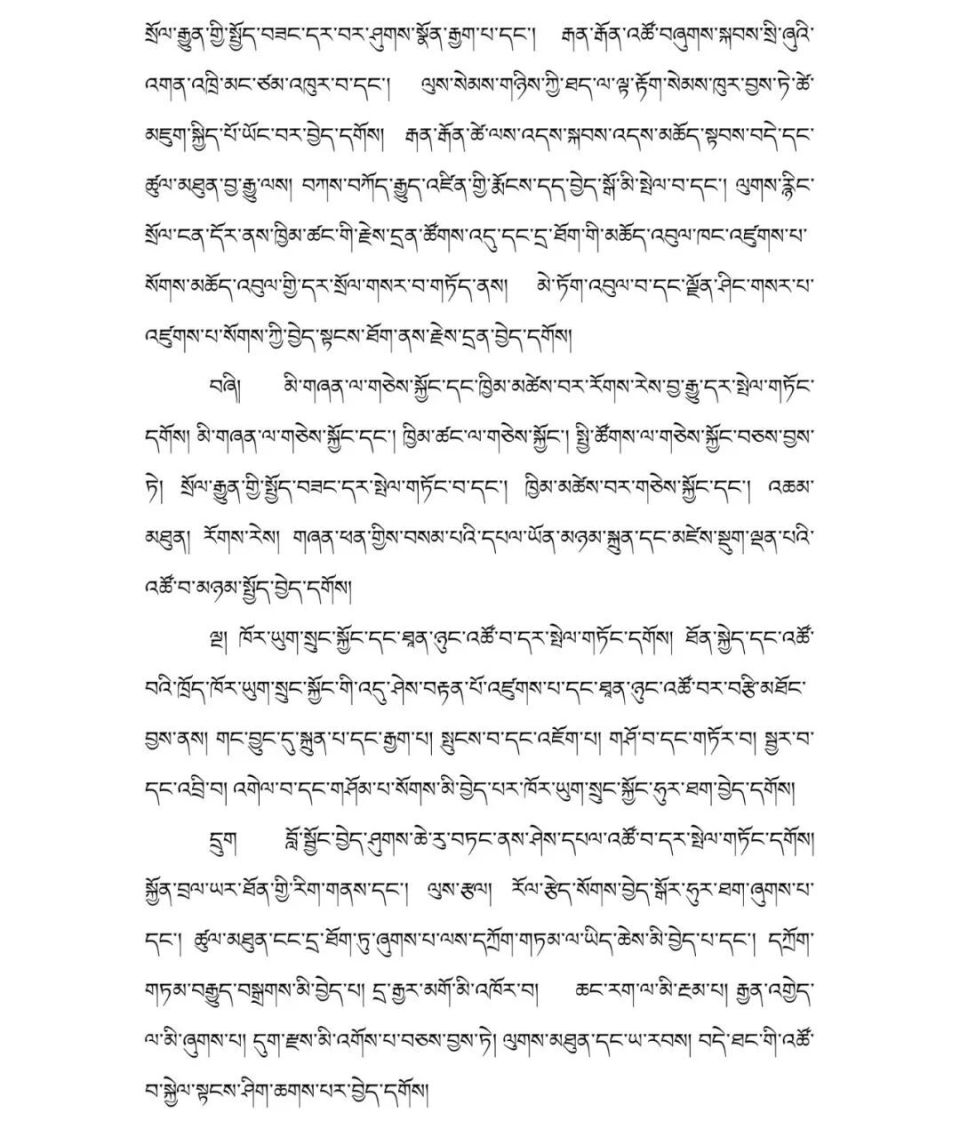 སྲོལ་རྒྱུན་གྱི་སྤྱོད་བཟང་དར་བར་ཤུགས་སྣོན་རྒྱག་པ་དང་། རྒན་རྒོན་འཚོ་བཞུགས་སྐབས་སྲི་ཞུའི་
འགན་འཁྲི་མང་ཙམ་འཁུར་བ་དང་། ལུས་སེམས་གཉིས་ཀྱི་ཐད་ལ་ལྟ་རྟོག་སེམས་ཁུར་བྱས་ཏེ་ཚེ་
མཇུག་སྐྱིད་པོ་ཡོང་བར་བྱེད་དགོས། རྒན་རྒོན་ཚེ་ལས་འདས་སྐབས་འདས་མཆོད་སྟབས་བདེ་དང་
ཚུལ་མཐུན་བྱ་རྒྱུ་ལས། བཀས་བཀོད་རྒྱུད་འཛིན་གྱི་རྨོངས་དད་བྱེད་སྒོ་མི་སྤེལ་བ་དང་། ལུགས་རྙིང་
སྲོལ་ངན་དོར་ནས་ཁྱིམ་ཚང་གི་རྗེས་དྲན་ཚོགས་འདུ་དང་དྲ་ཐོག་གི་མཆོད་འབུལ་ཁང་འཛུགས་པ་
སོགས་མཆོད་འབུལ་གྱི་དར་སྲོལ་གསར་བ་གཏོད་ནས། མེ་ཏོག་འབུལ་བ་དང་ལྗོན་ཤིང་གསར་པ་
འཛུགས་པ་སོགས་ཀྱི་བྱེད་སྟངས་ཐོག་ནས་རྗེས་དྲན་བྱེད་དགོས།
བཞི། མི་གཞན་ལ་གཅེས་སྐྱོང་དང་ཁྱིམ་མཚེས་བར་རོགས་རེས་བྱ་རྒྱུ་དར་སྤེལ་གཏོང་
དགོས། མི་གཞན་ལ་གཅེས་སྐྱོང་དང་། ཁྱིམ་ཚང་ལ་གཅེས་སྐྱོང་། སྤྱི་ཚོགས་ལ་གཅེས་སྐྱོང་བཅས་བྱས་
ཏེ། སྲོལ་རྒྱུན་གྱི་སྤྱོད་བཟང་དར་སྤེལ་གཏོང་བ་དང་། ཁྱིམ་མཚེས་བར་གཅེས་སྐྱོང་དང་། འཆམ་
མཐུན། རོགས་རེས། གཞན་ཕན་གྱིས་བསམ་པའི་དཔལ་ཡོན་མཉམ་སྐྲུན་དང་མཛེས་སྡུག་ལྡན་པའི་
འཚོ་བ་མཉམ་སྤྱོད་བྱེད་དགོས།
ལྔ། ཁོར་ཡུག་སྲུང་སྐྱོང་དང་ཐྭན་ཉུང་འཚོ་བ་དར་སྤེལ་གཏོང་དགོས། ཐོན་སྐྱེད་དང་འཚོ་
བའི་ཁྲོད་ཁོར་ཡུག་སྲུང་སྐྱོང་གི་འདུ་ཤེས་བརྟན་པོ་འཛུགས་པ་དང་ཐྭན་ཉུང་འཚོ་བར་བརྩི་མཐོང་
བྱས་ནས། གང་བྱུང་དུ་སྐྲུན་པ་དང་རྒྱག་པ། སྤུངས་བ་དང་འཇོག་པ། གཤོ་བ་དང་གཏོར་བ། སྦྱར་བ་
དང་འབྲི་བ། འགེལ་བ་དང་གཤོམ་པ་སོགས་མི་བྱེད་པར་ཁོར་ཡུག་སྲུང་སྐྱོང་ཧུར་ཐག་བྱེད་དགོས།
དྲུག བློ་སྦྱོང་བྱེད་ཤུགས་ཆེ་རུ་བཏང་ནས་ཤེས་དཔལ་འཚོ་བ་དར་སྤེལ་གཏོང་དགོས།
སྐྱོན་བྲལ་ཡར་ཐོན་གྱི་རིག་གནས་དང་། ལུས་རྩལ། རོལ་རྩེད་སོགས་བྱེད་སྒོར་ཧུར་ཐག་ཞུགས་པ་
དང་། ཚུལ་མཐུན་ངང་དྲ་ཐོག་ཏུ་ཞུགས་པ་ལས་དཀྲོག་གཏམ་ལ་ཡིད་ཆེས་མི་བྱེད་པ་དང་། དཀྲོག་
གཏམ་བརྒྱུད་བསྒྲགས་མི་བྱེད་པ། དྲ་རྒྱར་མགོ་མི་འཁོར་བ། ཆང་རག་ལ་མི་རྔམ་པ། རྒྱན་འགྱེད་
ལ་མི་ཞུགས་པ། དུག་རྫས་མི་འགོས་པ་བཅས་བྱས་ཏེ། ལུགས་མཐུན་དང་ཡ་རབས། བདེ་ཐང་གི་འཚོ་
བ་སྐྱེལ་སྟངས་ཤིག་ཆགས་པར་བྱེད་དགོས།